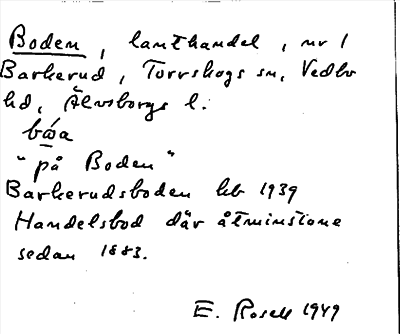 Boden, lanthandel, nr 1
Barkerud, Torrskogs sn, Vedbo
hd, Älvsborgs l.
"på Boden"
Barkerudsboden kb 1939
Handelsbod där åtminstone
sedan 1883.
E. Rosell 1949